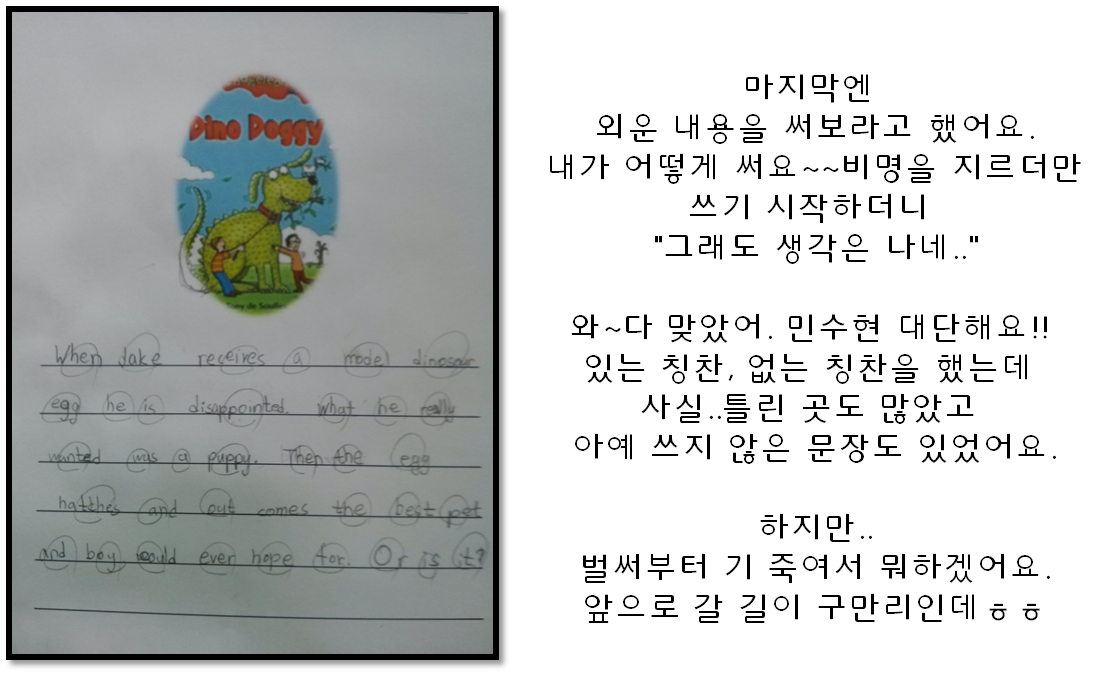 Dino Doggy
Tony de Saulles
When Jake receives a model dinosaur
egg he is disappointed. What he really
wanted was a puppy. Then the egg
hatthes and out comes the best pet
and boy would ever hope for. Or is it?
마지막엔
외운 내용을 써보라고 했어요.
내가 어떻게 써요~~비명을 지르더만
쓰기 시작하더니
"그래도 생각은 나네.."
와~다 맞았어. 민수현 대단해요!!
있는 칭찬, 없는 칭찬을 했는데
사실..틀린 곳도 많았고
아예 쓰지 않은 문장도 있었어요.
하지만..
벌써부터 기 죽여서 뭐하겠어요.
앞으로 갈 길이 구만리인데ㅎㅎ